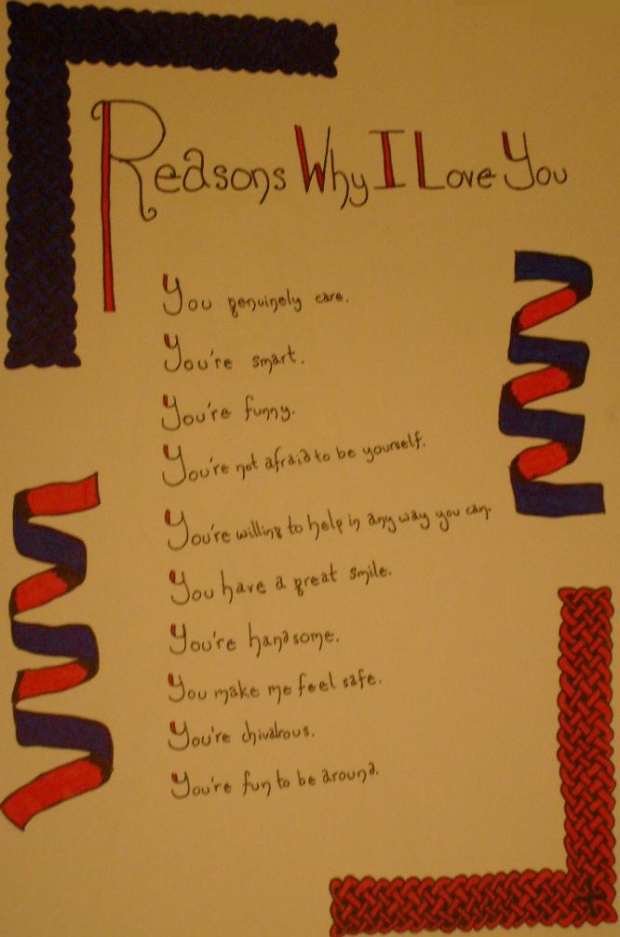 Reasons Why I Love You
You genuinely care.
You're smart.
You're funny.
You're not afraid to be yourself.
You're willing to help in any way you can.
You have a great smile.
You're handsome.
You make me feel safe.
You're chivalrous.
You're fun to be around.